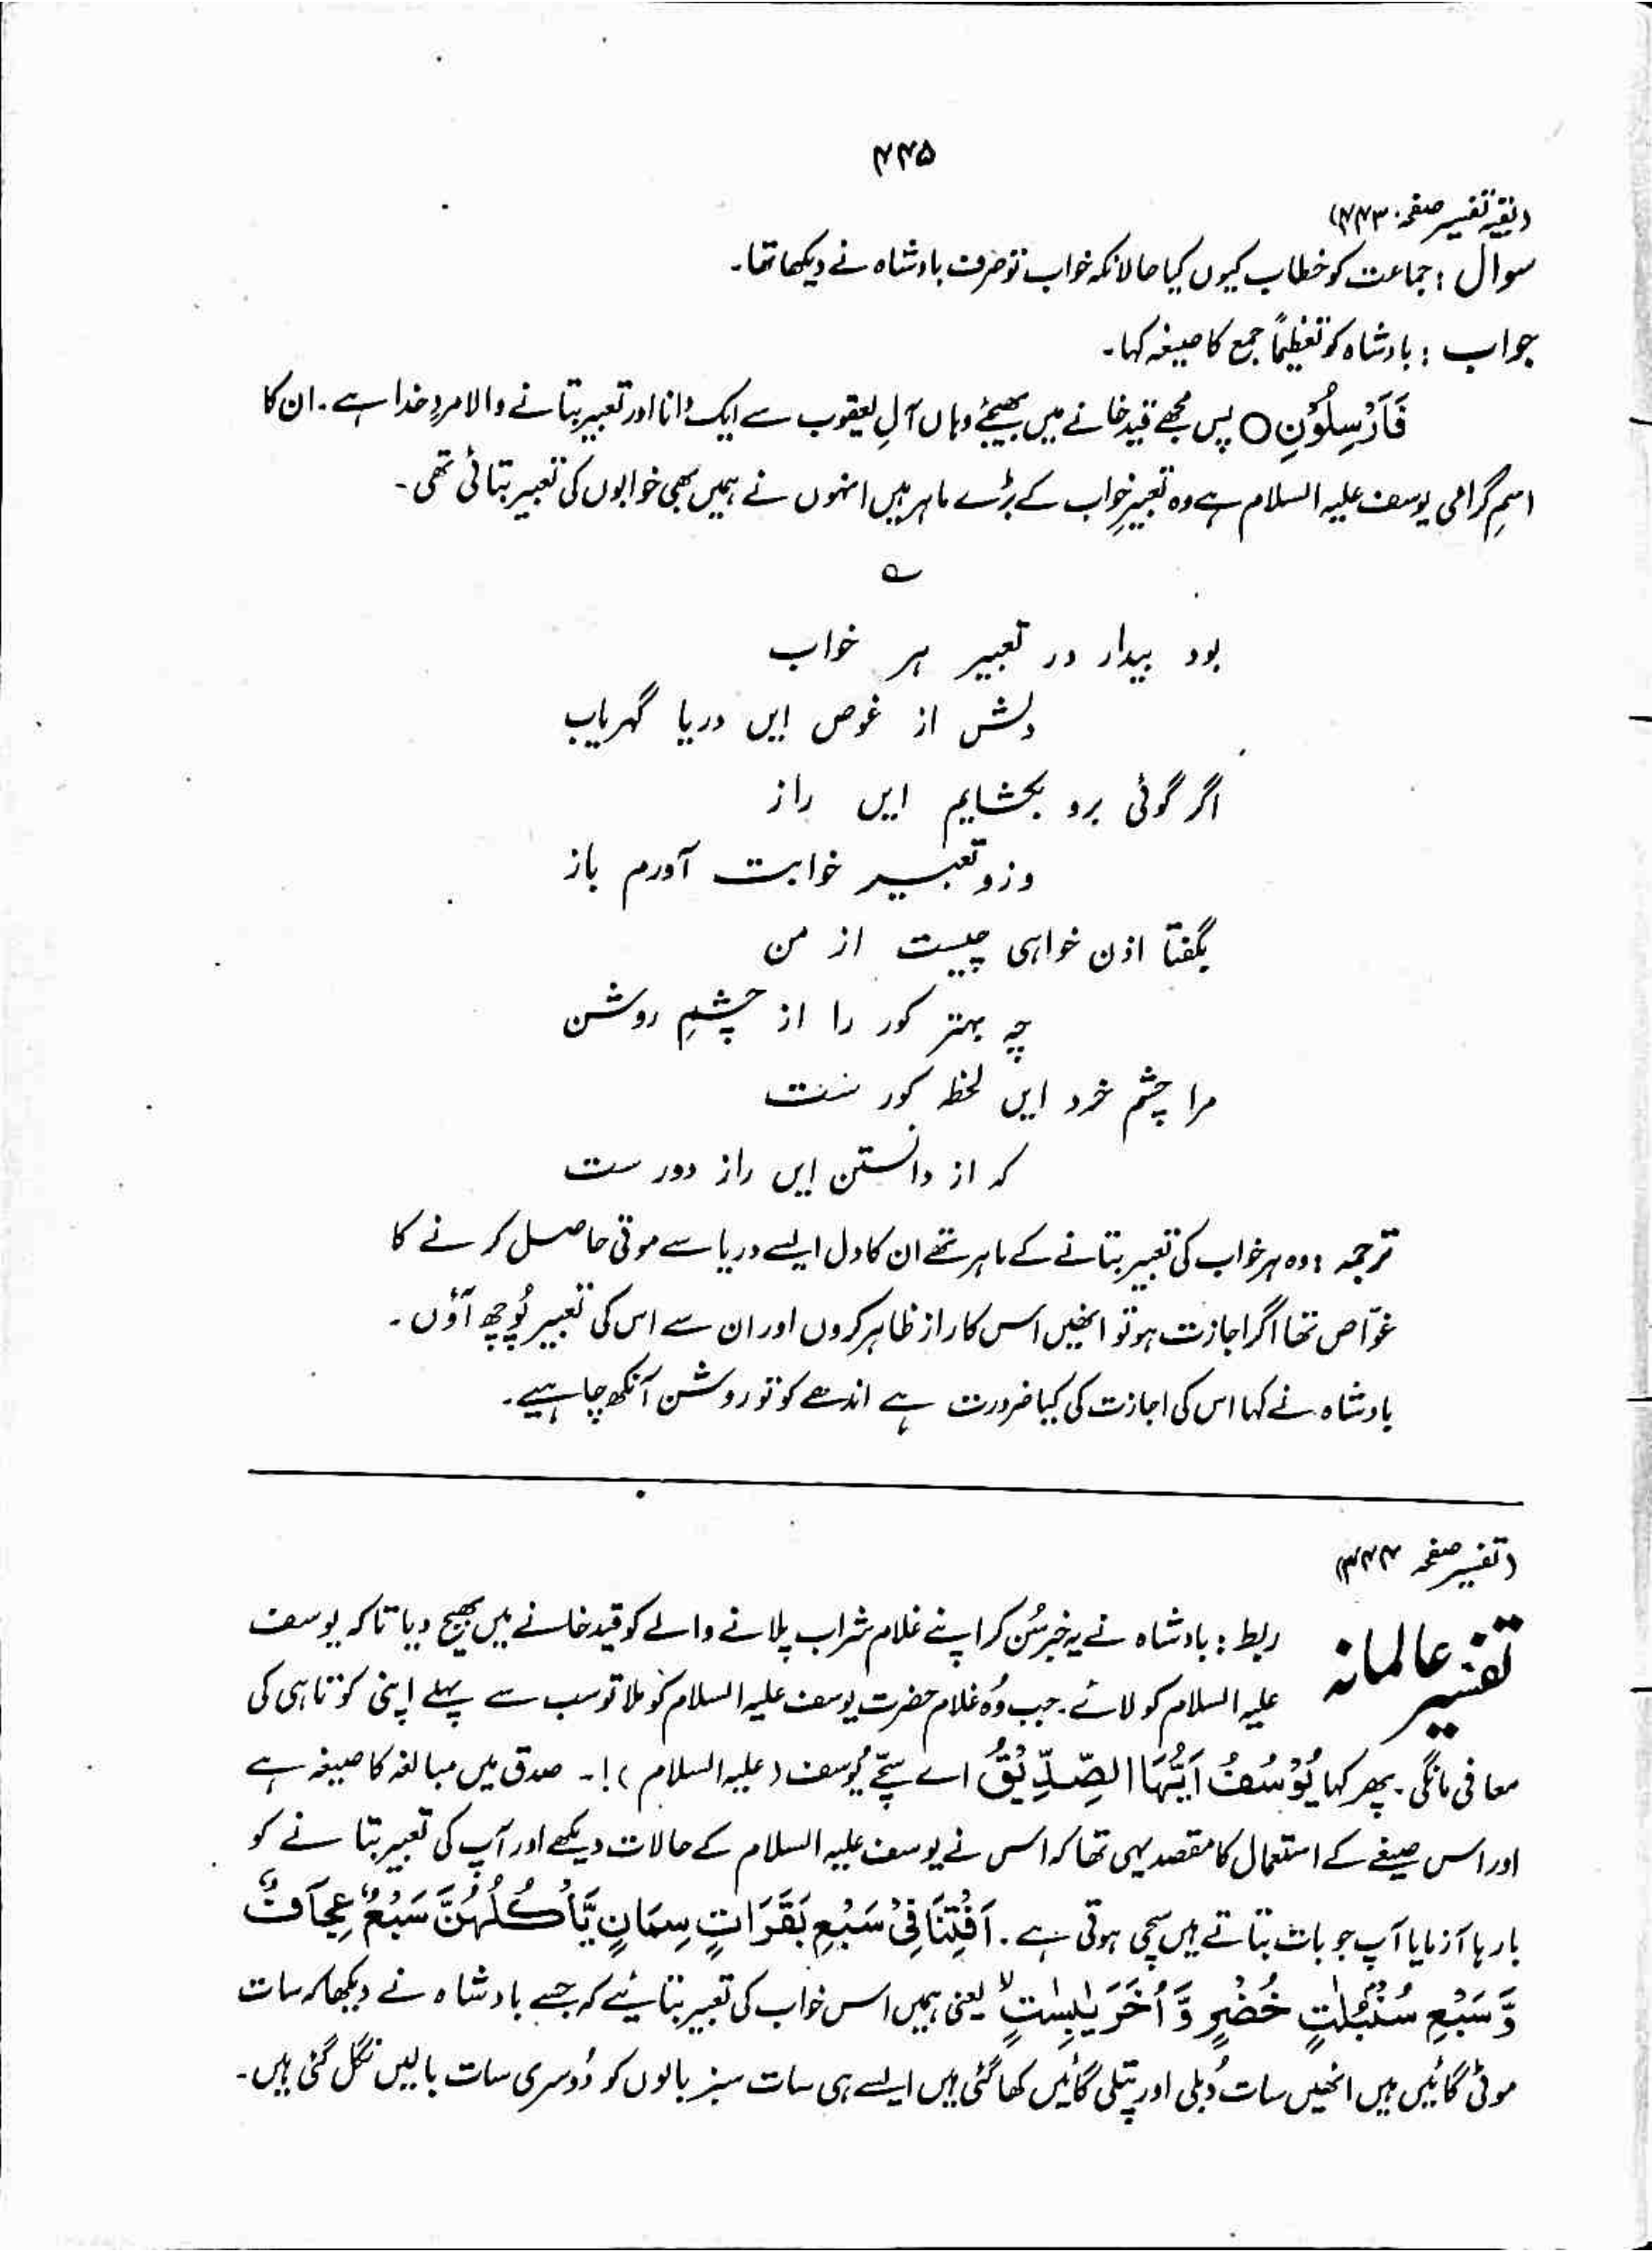 ۴۴۵
(بقیہ تفسیر صفحہ ۴۴۳)
سوال : جماعت کو خطاب کیوں کیا حالانکہ خواب تو صرف بادشاہ نے دیکھا تھا۔
جواب : بادشاہ کو تعظیماً جمع کا صیغہ کہا۔
فَاَرْسِلُوْنِ○ پس مجھے قید خانے میں بھیجئے وہاں آلِ یعقوب سے ایک دانا اور تعبیر بتانے والا مردِ خدا ہے۔ ان کا
اسمِ گرامی یوسف علیہ السلام ہے وہ تعبیرِ خواب کے بڑے ماہر ہیں انہوں نے ہمیں بھی خوابوں کی تعبیر بتائی تھی۔
؎
بود بیدار در تعبیر ہر خواب
دلش از غوص ایں دریا گہریاب
اگر گوئی برو بکشایم ایں راز
وزو تعبیر خوابت آورم باز
بگفتا اذن خواہی چیست از من
چہ بہتر کور را از چشمِ روشن
مرا چشم خرد ایں لحظہ کور ست
کہ از دانستن ایں راز دور ست
ترجمہ : وہ ہر خواب کی تعبیر بتانے کے ماہر تھے ان کا دل ایسے دریا سے موتی حاصل کرنے کا
غوّاص تھا اگر اجازت ہو تو انھیں اس کا راز ظاہر کروں اور ان سے اس کی تعبیر پُوچھ آؤں۔
بادشاہ نے کہا اس کی اجازت کی کیا ضرورت ہے اندھے کو تو روشن آنکھ چاہیے۔
(تفسیر صفحہ ۴۴۴)
تفسیر عالمانہ ربط : بادشاہ نے یہ خبر سُن کر اپنے غلام شراب پلانے والے کو قید خانے میں بھیج دیا تاکہ یوسف
علیہ السلام کو لائے۔ جب وُہ غلام حضرت یوسف علیہ السلام کو ملا تو سب سے پہلے اپنی کوتاہی کی
معافی مانگی۔ پھر کہا یُوْسُفُ اَیُّهَا الصِّدِّیْقُ اے سچّے یُوسف (علیہ السلام)!۔ صدق میں مبالغہ کا صیغہ ہے
اور اس صیغے کے استعمال کا مقصد یہی تھا کہ اس نے یوسف علیہ السلام کے حالات دیکھے اور آپ کی تعبیر بتانے کو
بارہا آزمایا آپ جو بات بتاتے ہیں سچی ہوتی ہے۔ اَفْتِنَا فِیْ سَبْعِ بَقَرَاتٍ سِمَانٍ یَّاْكُلُهُنَّ سَبْعٌ عِجَافٌ
وَّ سَبْعِ سُنْۢبُلٰتٍ خُضْرٍ وَّ اُخَرَ یٰبِسٰتٍ ۙ یعنی ہمیں اس خواب کی تعبیر بتائیے کہ جسے بادشاہ نے دیکھا کہ سات
موٹی گائیں ہیں انھیں سات دُبلی اور پتلی گائیں کھا گئی ہیں ایسے ہی سات سبز بالوں کو دُوسری سات بالیں نگل گئی ہیں۔